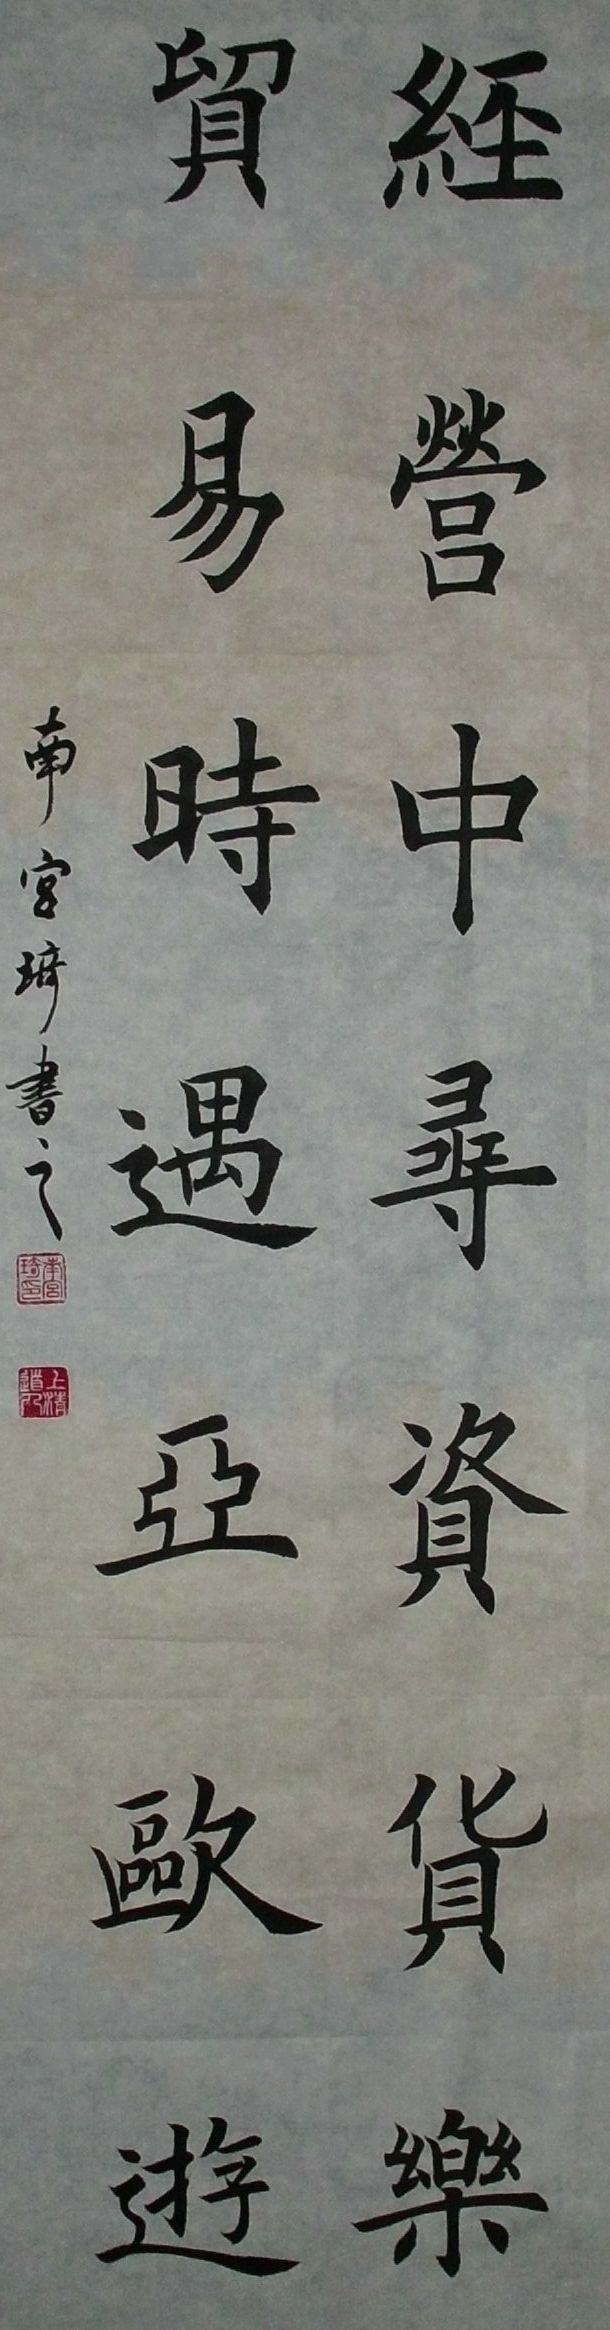 經營中尋資貨樂
貿易時遇亞歐遊
南宮琦書之
南宮琦印
上清道人